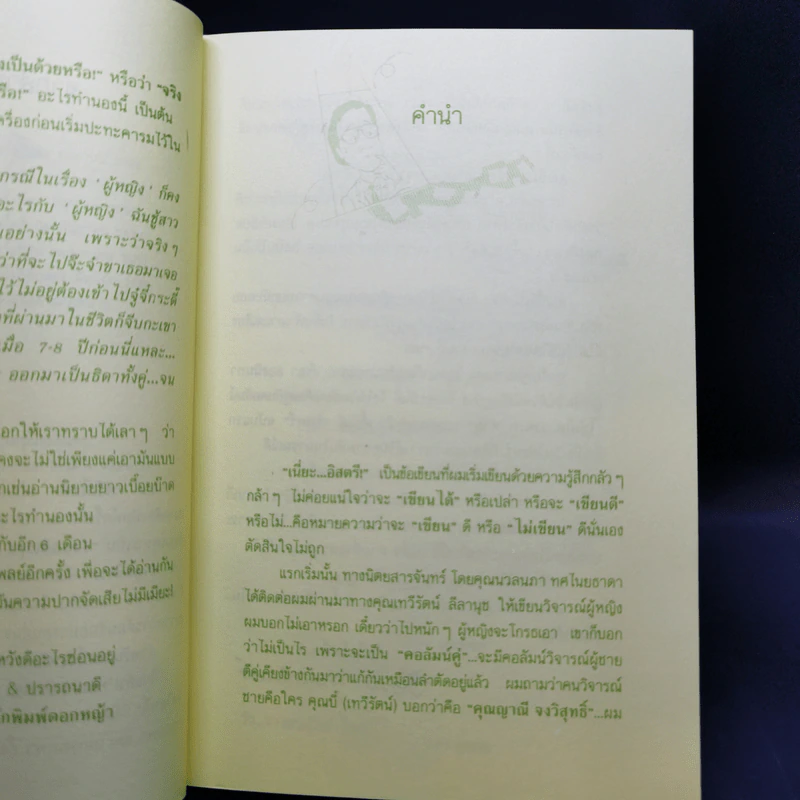 มเป็นด้วยหรือ!" หรือว่า "จริง
รือ!" อะไรทำนองนี้ เป็นต้น
หรืองก่อนเริ่มปะทะคารมไว้ใน
กรณีในเรื่อง 'ผู้หญิง' ก็คง
อะไรกับ 'ผู้หญิง' ฉันชู้สาว
นอย่างนั้น เพราะว่าจริงๆ
ว่าที่จะไปจ๊ะจ๋าขาเธอมาเจอ
ไว้ไม่อยู่ต้องเข้าไปจู๋จี๋กระดี๊
ที่ผ่านมาในชีวิตก็จีบกะเขา
มื่อ 7-8 ปีก่อนนี่แหละ...
ออกมาเป็นธิดาทั้งคู่...จน
อกให้เราทราบได้เลาๆ ว่า
คงจะไม่ใช่เพียงแค่เอามันแบบ
กเช่นอ่านนิยายยาวเบื่อยบ๊าต
ะไรทำนองนั้น
กับอีก 6 เดือน
พลย์อีกครั้ง เพื่อจะได้อ่านกัน
วันความปากจัดเสียไม่มีเมียะ!
หวังดีอะไรซ่อนอยู่
& ปรารถนาดี
นักพิมพ์ดอกหญ้า
คำนำ
"เนี่ยะ...อิสตรี!" เป็นข้อเขียนที่ผมเริ่มเขียนด้วยความรู้สึกกลัวๆ
กล้าๆ ไม่ค่อยแน่ใจว่าจะ "เขียนได้" หรือเปล่า หรือจะ "เขียนดี"
หรือไม่...คือหมายความว่าจะ "เขียน" ดี หรือ "ไม่เขียน" ดีนั่นเอง
ตัดสินใจไม่ถูก
แรกเริ่มนั้น ทางนิตยสารจันทร์ โดยคุณนวลนภา ทศไนยธาดา
ได้ติดต่อผมผ่านมาทางคุณเทวีรัตน์ ลีลานุช ให้เขียนวิจารณ์ผู้หญิง
ผมบอกไม่เอาหรอก เดี๋ยวว่าไปหนักๆ ผู้หญิงจะโกรธเอา เขาก็บอก
ว่าไม่เป็นไร เพราะจะเป็น "คอลัมน์คู่"...จะมีคอลัมน์วิจารณ์ผู้ชาย
ตีคู่เคียงข้างกันมาว่าแก้กันเหมือนลำตัดอยู่แล้ว ผมถามว่าคนวิจารณ์
ชายคือใคร คุณบี้ (เทวีรัตน์) บอกว่าคือ "คุณญาณี จงวิสุทธิ์"...ผม